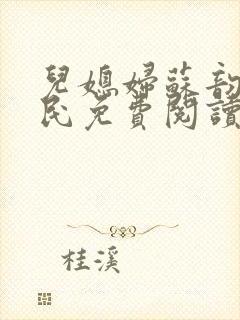 兒媳婦蘇韵
民免費閱讀
桂溪